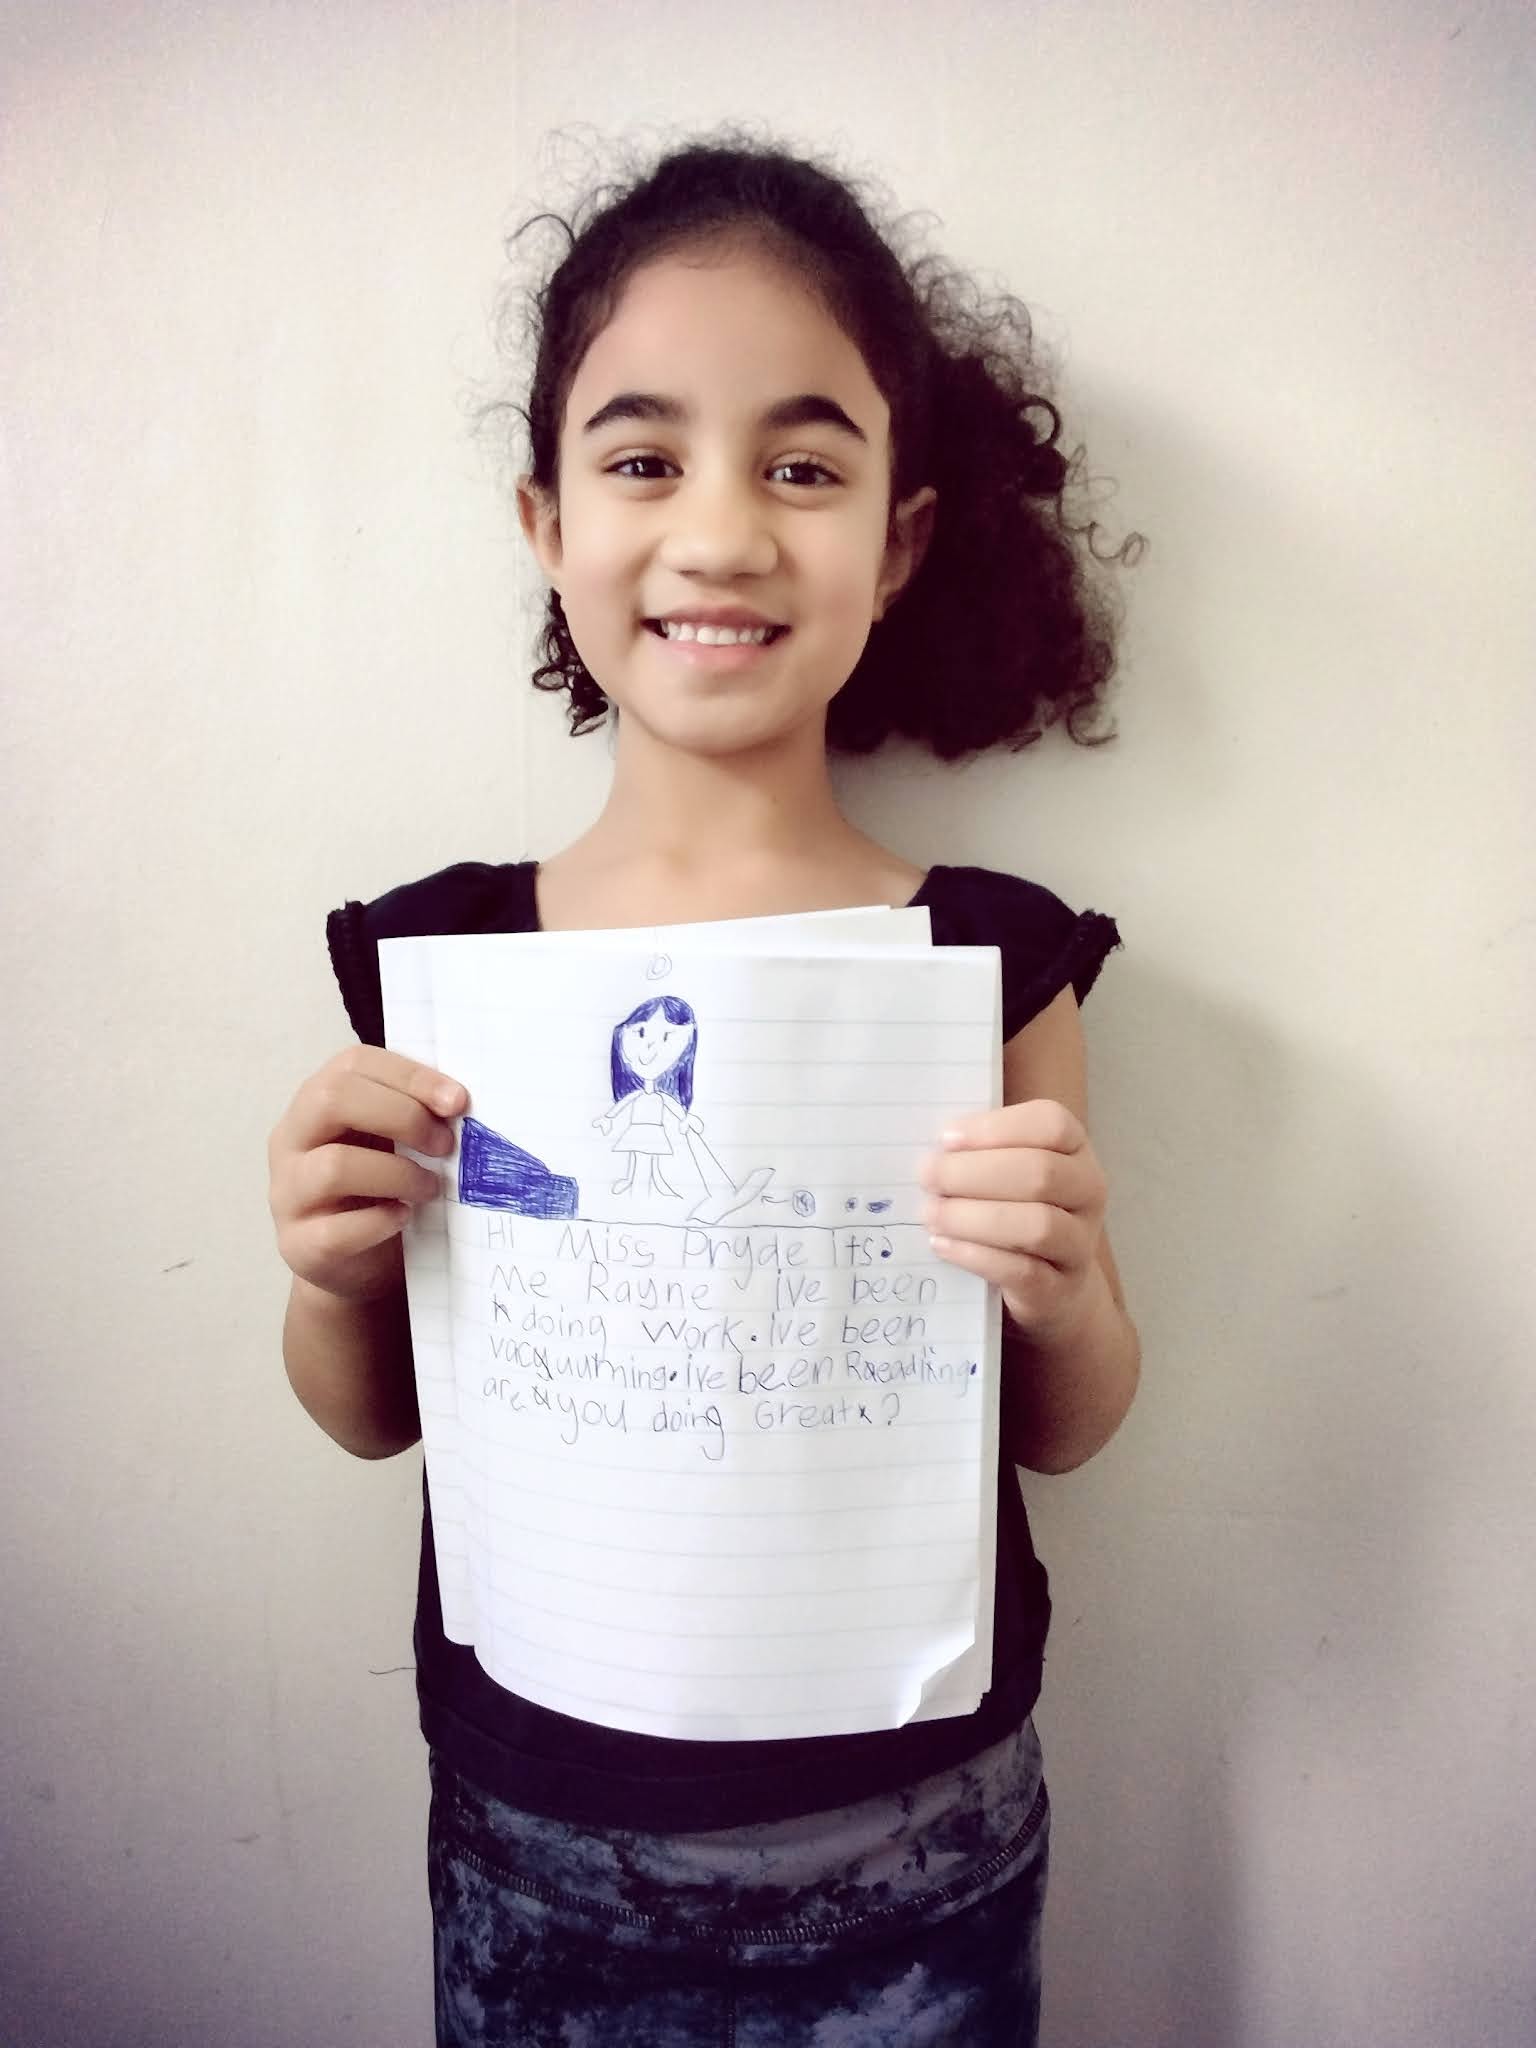 Hi Miss Pryde its
Me Rayne ive been
doing Work. ive been
vacyuuming. ive been Raeading.
are you doing Great?